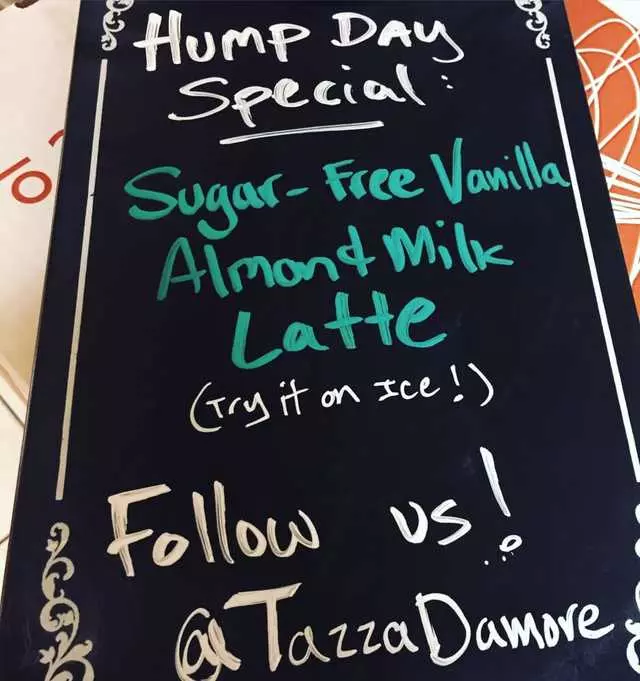 Hump Day
Special:
Sugar-Free Vanilla
Almond Milk
Latte
(Try it on Ice!)
Follow us!
@TazzaDamore